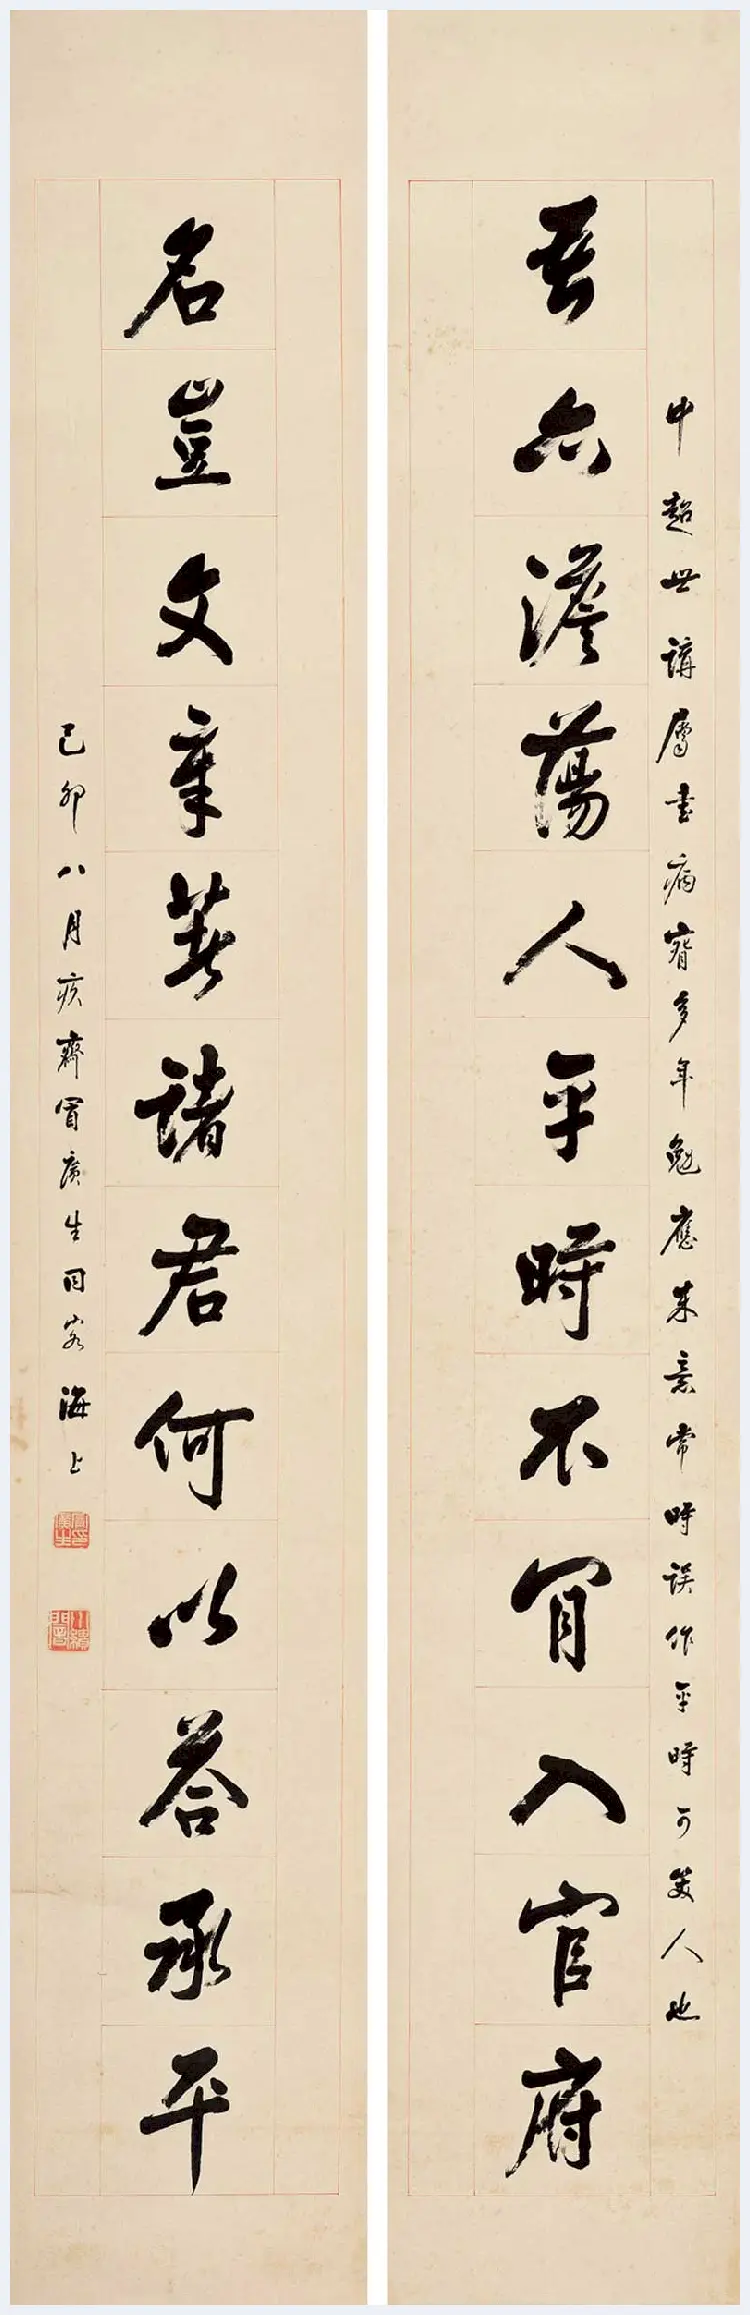 中超世講屬書病多年勉應来意常時誤作平時可笑人也
吾亦澹蕩人平時不肎入官府
名豈文章著諸君何以答承平
己卯八月疚齋冒廣生同客海上